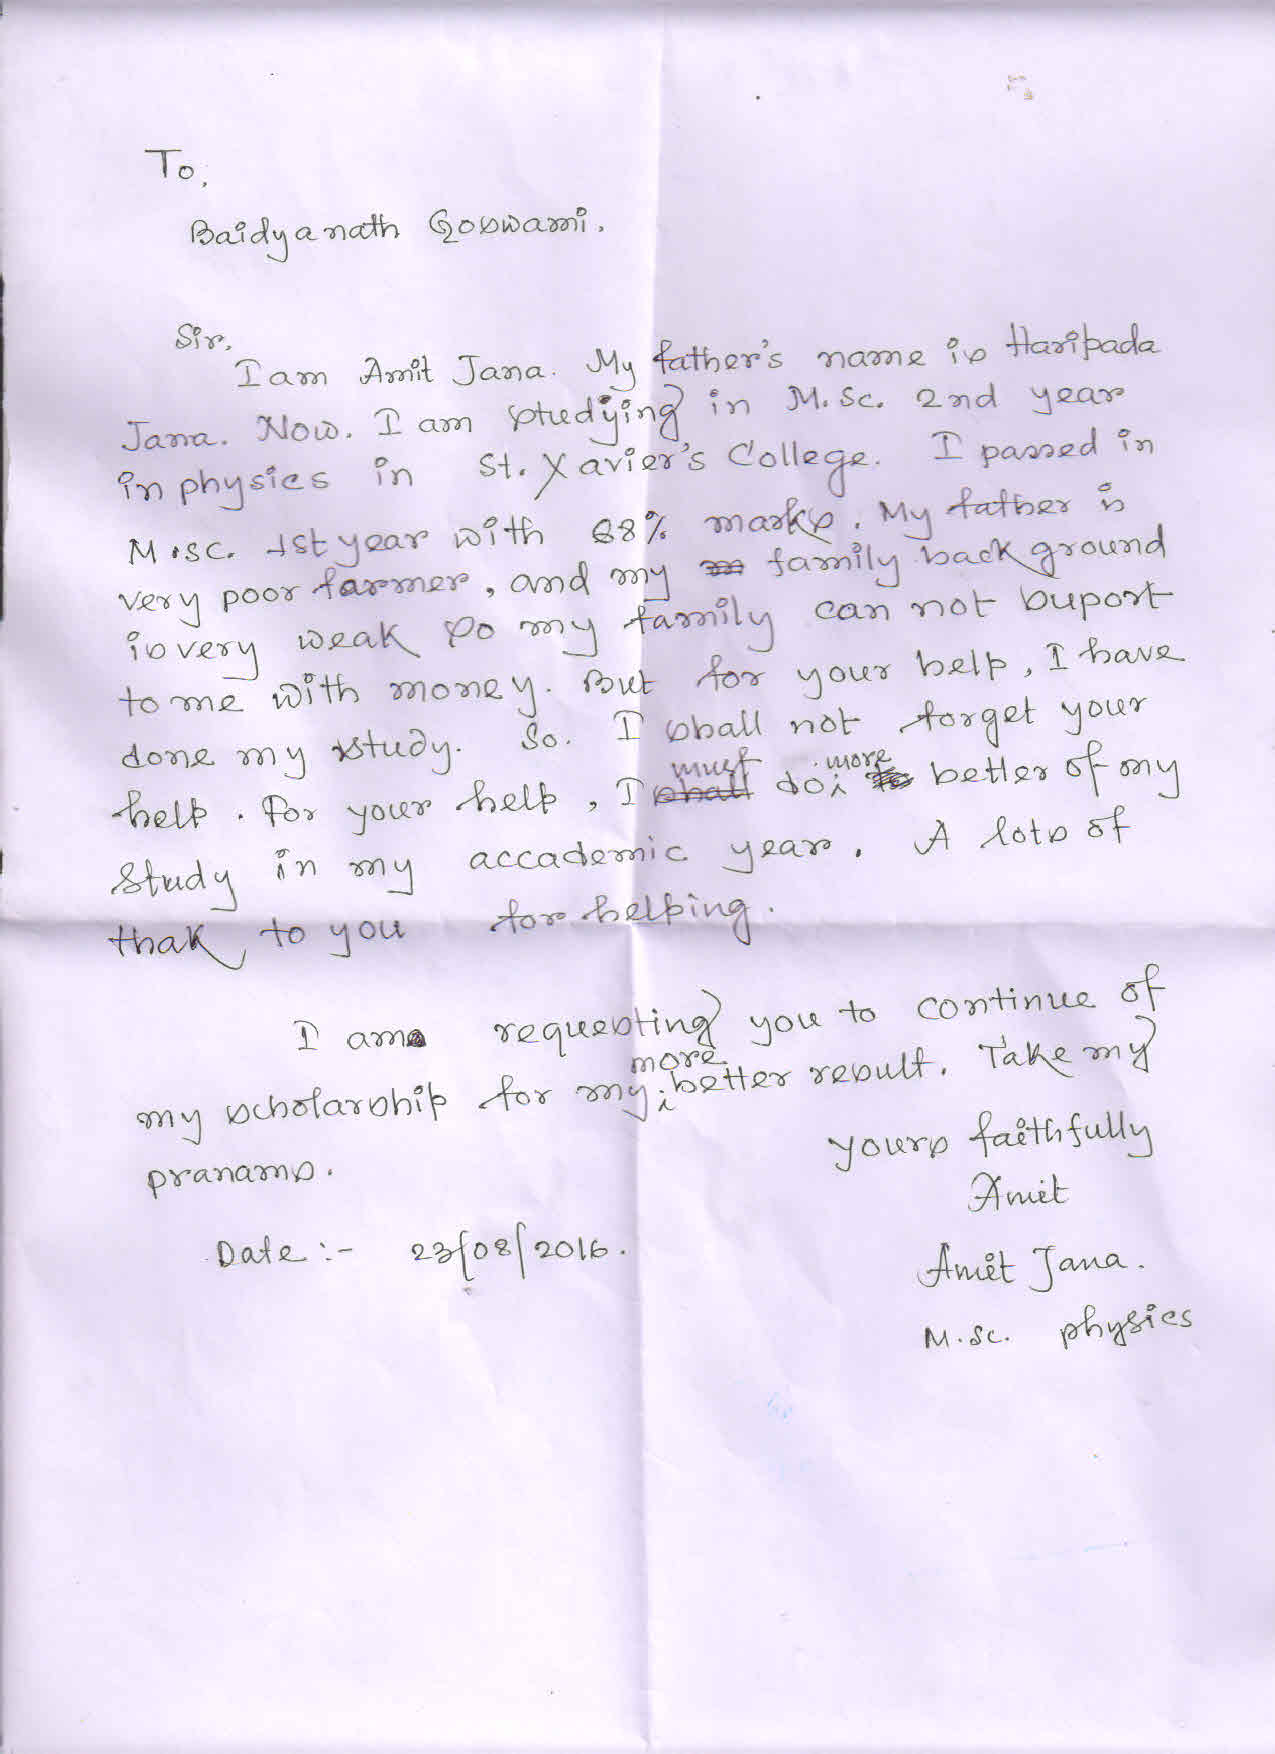 To,
Baidyanath Goswami.
Sir,
I am Amit Jana. My father's name is Haripada
Jana. Now. I am studying in M.Sc. 2nd year
in physics in St. Xavier's College. I passed in
M.sc. 1st year with 68% marks. My father is
very poor farmer, and my family back ground
is very weak so my family can not suport
to me with money. But for your help, I have
done my study. So. I shall not forget your
help. For your help, I must do more better of my
study in my accademic year. A lots of
thak to you for helping.
I am requesting you to continue of
my scholarship for my more better result. Take my
pranams.
yours faithfully
Amit
Date :- 23/08/2016.
Amit Jana.
M.sc. physics